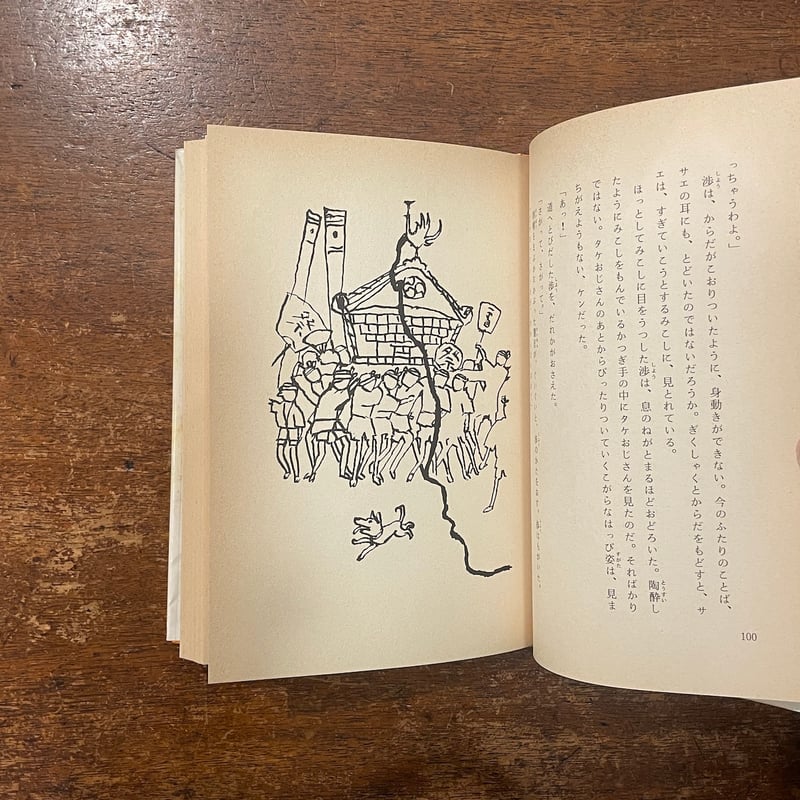 っちゃうわよ。」
渉は、からだがこおりついたように、身動きができない。今のふたりのことば、
サエの耳にも、とどいたのではないだろうか。ぎくしゃくとからだをもどすと、サ
エは、すぎていこうとするみこしに、見とれている。
ほっとしてみこしに目をうつした渉は、息のねがとまるほどおどろいた。陶酔し
たようにみこしをもんでいるかつぎ手の中にタケおじさんを見たのだ。そればかり
ではない。タケおじさんのあとからぴったりついていくこがらなはっぴ姿は、見ま
ちがえようもない、ケンだった。
「あっ!」
道へとびだした渉を、だれかがおさえた。
「さがって、さがって。」
100